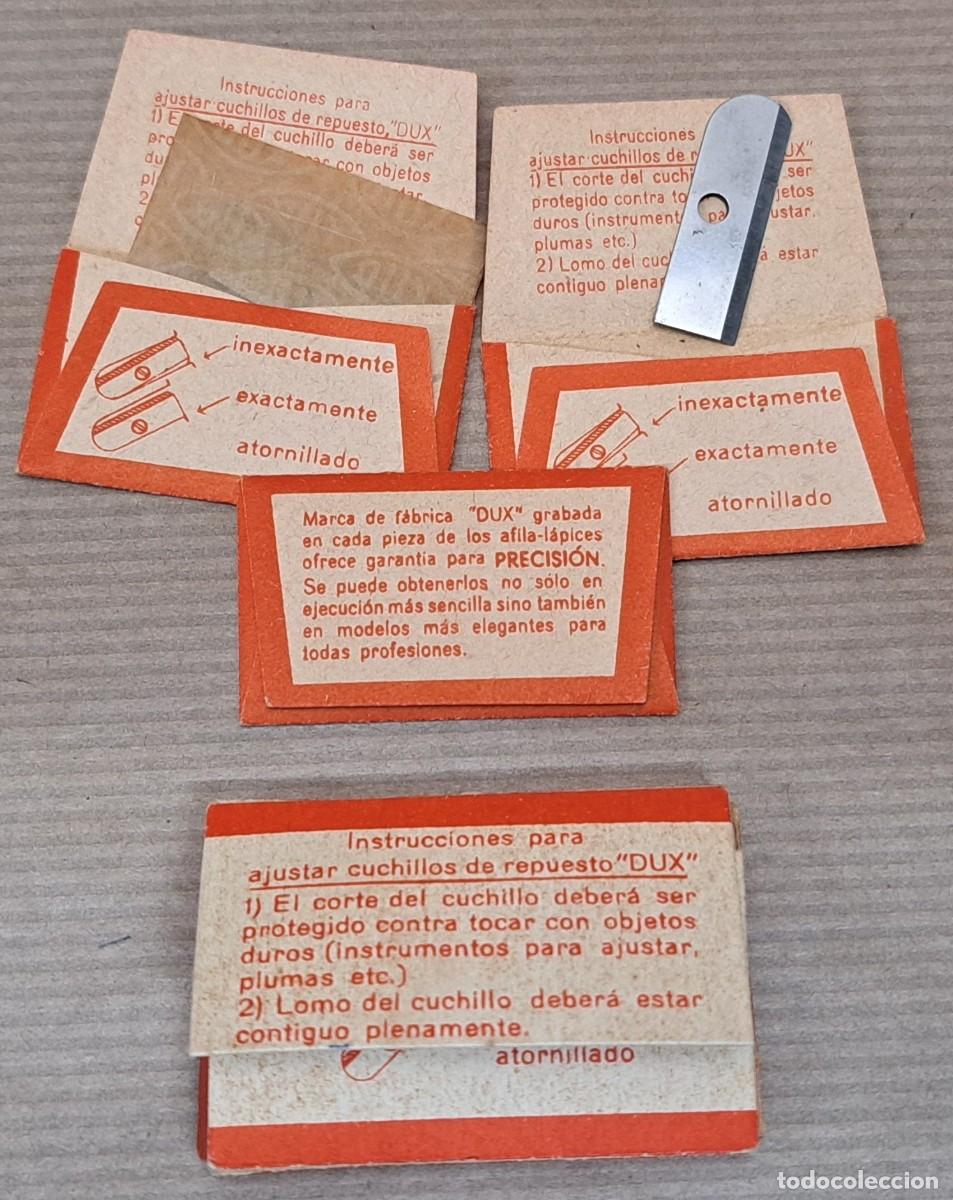 Instrucciones para
ajustar cuchillos de repuesto,"DUX"
1) E corte del cuchillo deberá ser
con objetos
ajustar,
inexactamente
exactamente
atornillado
Instrucciones
ajustar cuchillos de r UX"
1) El corte del cuchi ser
protegido contra to jetos
duros (instrument pa ustar,
plumas etc.)
2) Lomo del cuc á estar
contiguo plena
inexactamente
exactamente
atornillado
Marca de fábrica "DUX" grabada
en cada pieza de los afila-lápices
ofrece garantía para PRECISIÓN.
Se puede obtenerlos no sólo en
ejecución más sencilla sino también
en modelos más elegantes para
todas profesiones.
Instrucciones para
ajustar cuchillos de repuesto "DUX"
1) El corte del cuchillo deberá ser
protegido contra tocar con objetos
duros (instrumentos para ajustar,
plumas etc.)
2) Lomo del cuchillo deberá estar
contiguo plenamente.
atornillado
todocoleccion